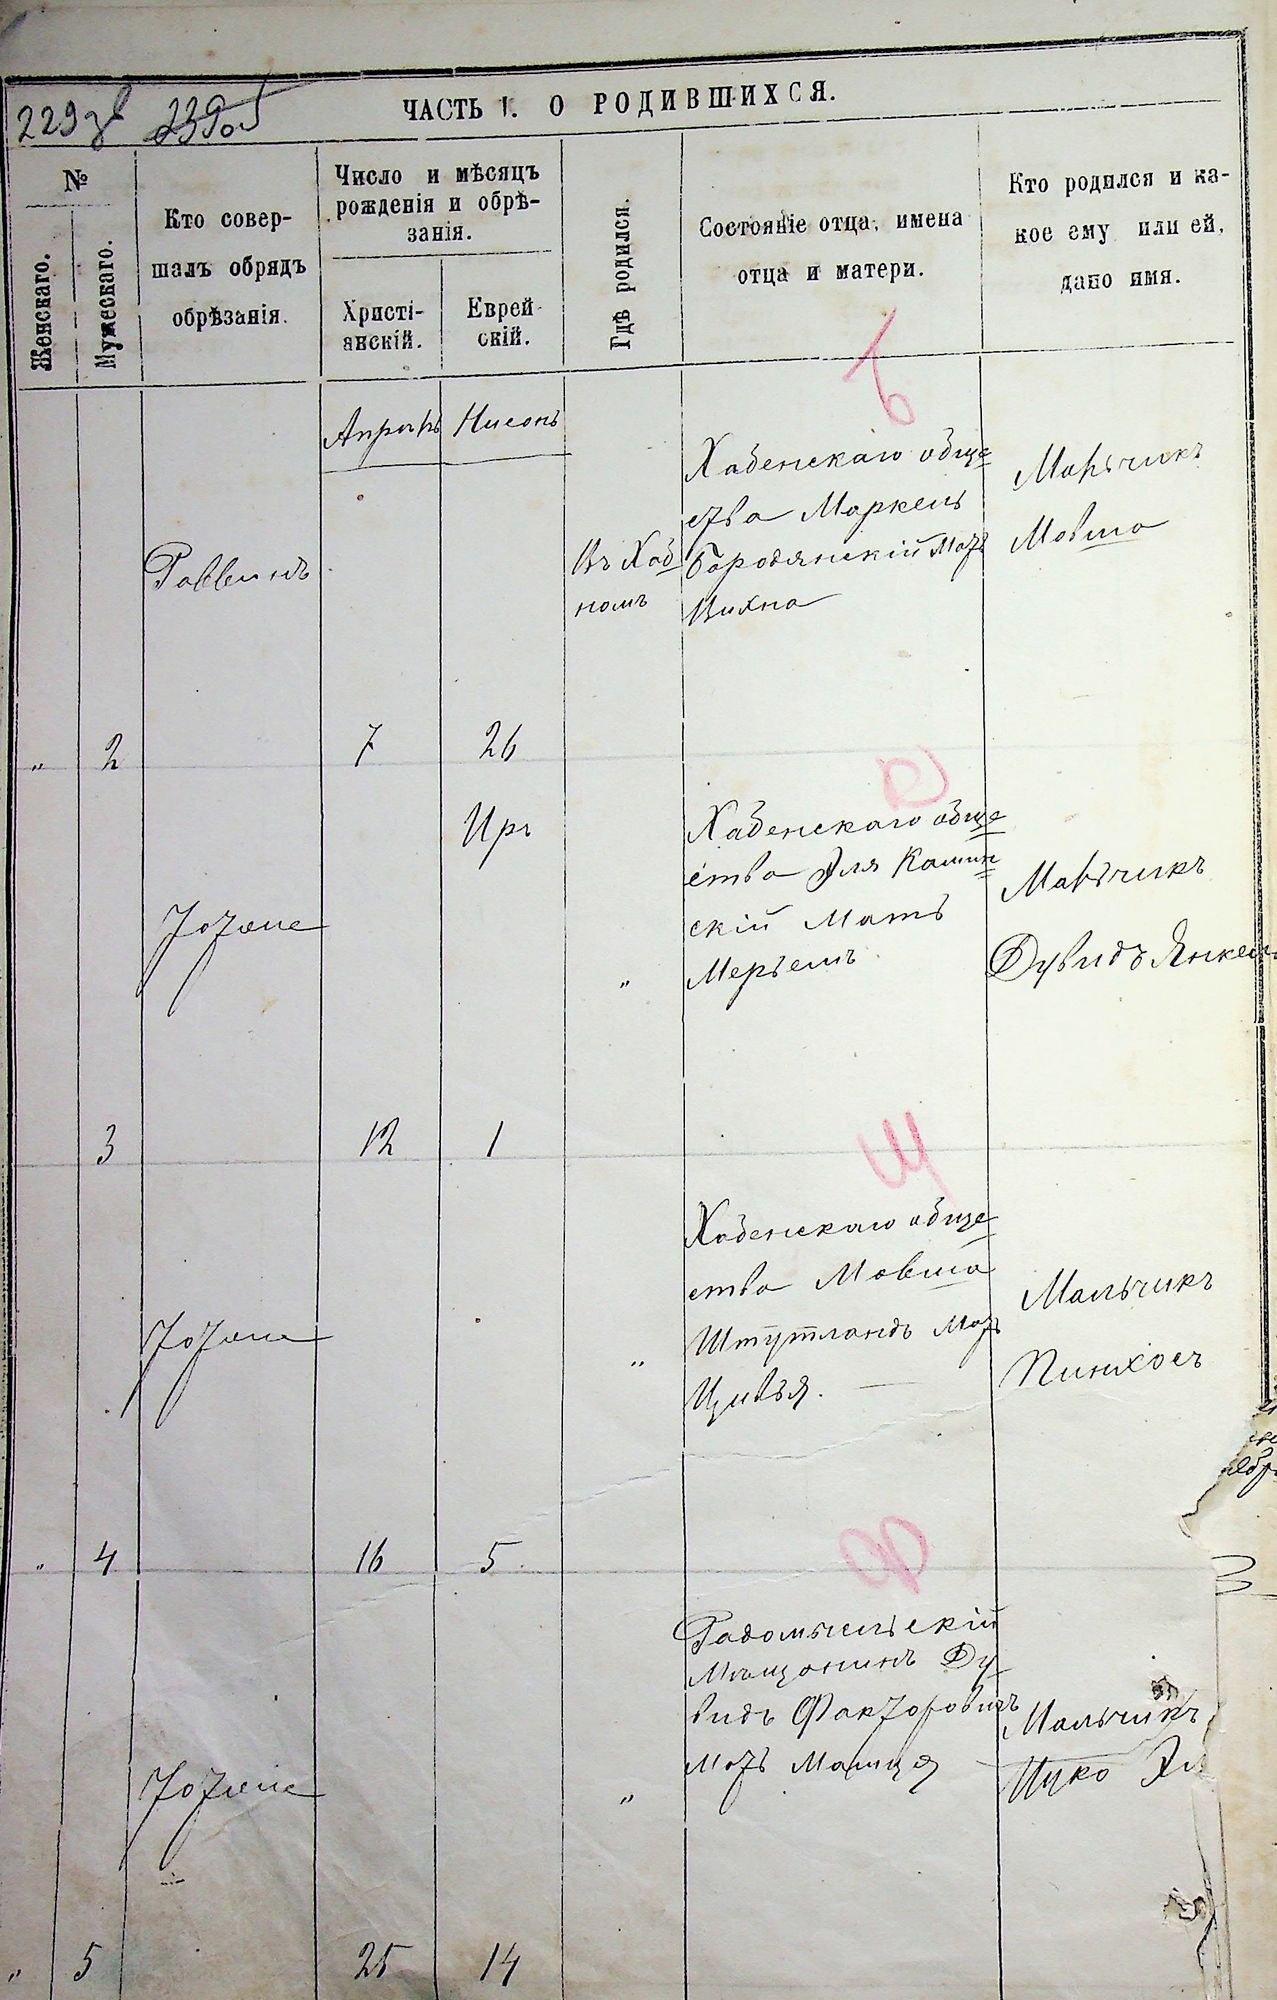 229 зв 239об
ЧАСТЬ I. О РОДИВШИХСЯ.
№
Женскаго.
Мужескаго.
Кто совер-
шалъ обрядъ
обрѣзанія.
Число и мѣсяцъ
рожденія и обрѣ-
занія.
Христі-
анскій.
Еврей-
скій.
Гдѣ родился.
Состояніе отца, имена
отца и матери.
Кто родился и ка-
кое ему или ей,
дано имя.
Б
Апрѣль Нисонъ
Раввинъ
Въ Хаб
номъ
Хабенскаго обще
ства Маркель
Бородянскій Мать
Вихна
Мальчикъ
Мовша
" 2 7 26
К
Иръ
Тотже
"
Хабенскаго обще
ства Эля Камин
скій Мать
Меръемъ
Мальчикъ
Дувидъ Янкель
3 12 1
Щ
Тотже
"
Хабенскаго обще
ства Мовша
Штутландъ Мать
Цивья.
Мальчикъ
Пинхосъ
" 4 16 5
Ф
Тотже
"
Радомысльскій
Мѣщанинъ Ду
видъ Факторовичъ
мать Маиця
Мальчикъ
Ицко Эл
" 5 25 14